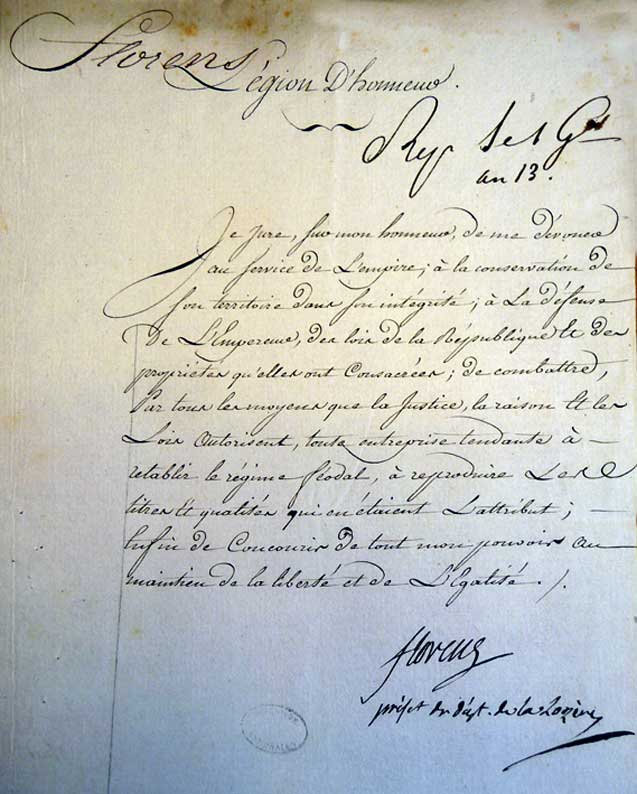 Florens
Légion D'honneur.
Rep le 1 G
an 13.
Je jure, sur mon honneur, de me dévouer
au service de L'empire; à la conservation de
son territoire dans son intégrité; à La défense
De L'Empereur, des lois de la République Et des
propriétés qu'elles ont Consacrées; de combattre,
Par tous les moyens que la Justice, la raison Et les
Lois autorisent, toute entreprise tendante à —
retablir le régime féodal, à reproduire Les
titres Et qualités qui en étaient L'attribut; —
Enfin de Concourir de tout mon pouvoir au
maintien de la liberté et de L'Egalité. /.
florens
préfet du dépt. de la Lozère